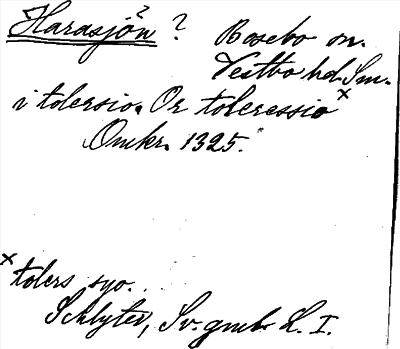 Harasjön? ? Bosebo sn.
Vestbo hd. Sm.
i tolersio. Or toleressio x
Omkr. 1325.
x tolers syo.
Schlyter, Sv. gmb. L. I.